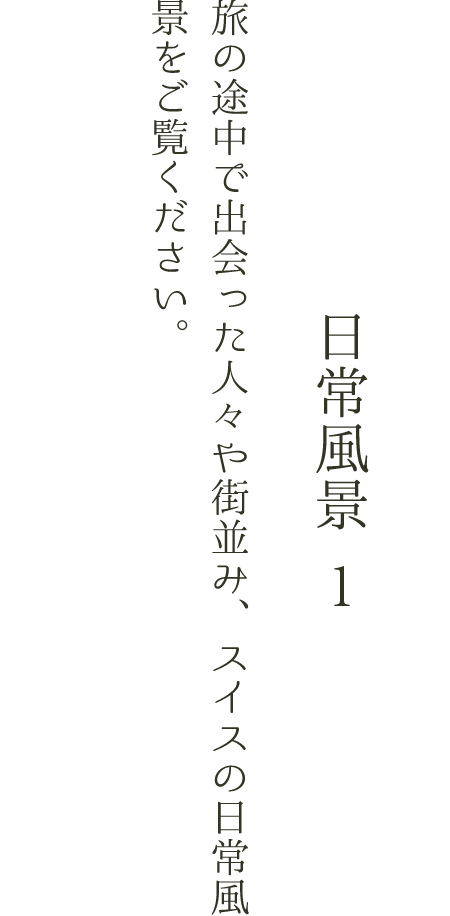 日常風景 1
旅の途中で出会った人々や街並み、スイスの日常風
景をご覧ください。